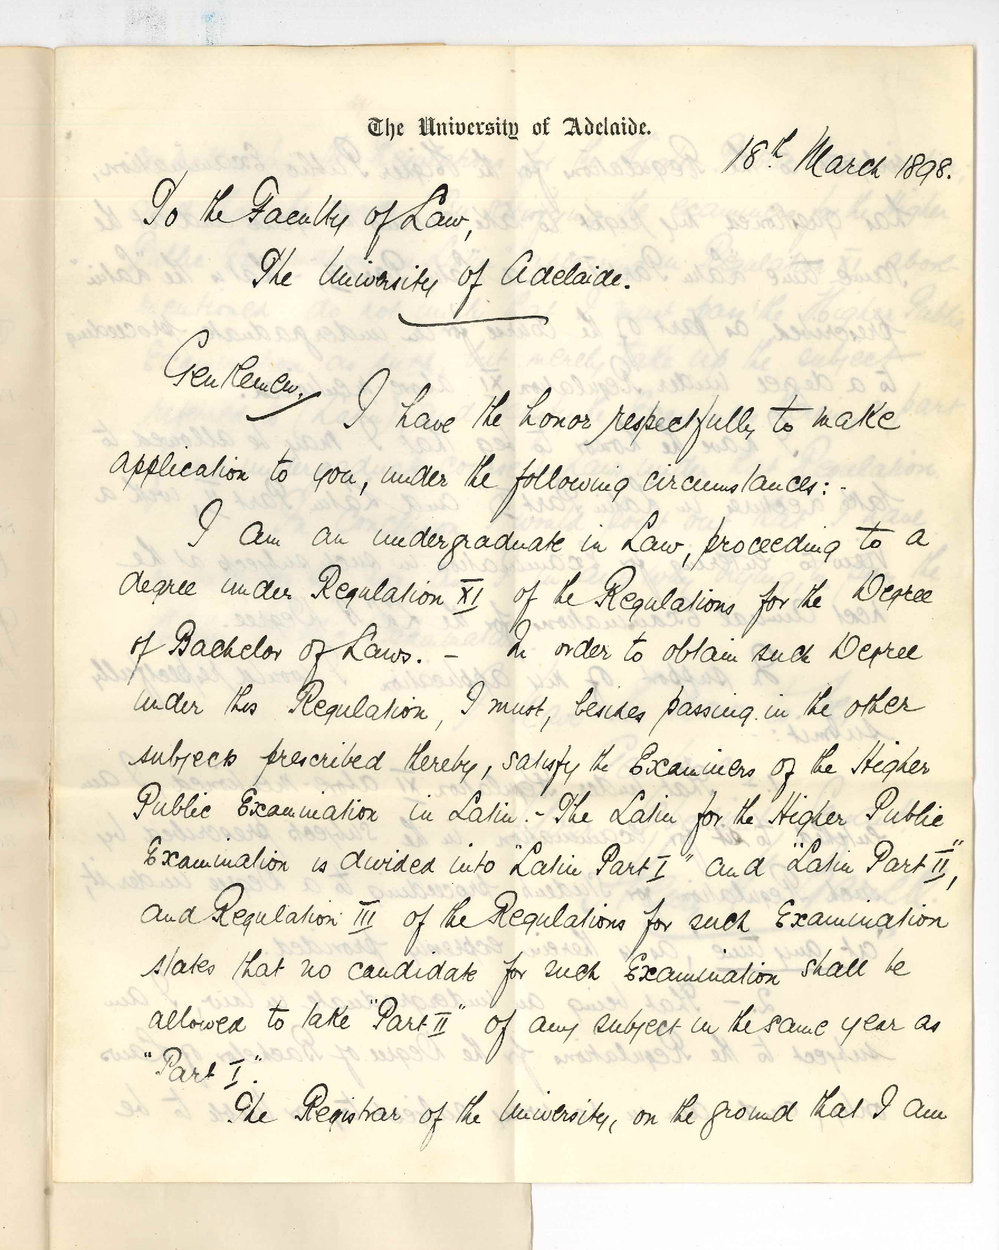 The University of Adelaide.
18th March 1898.
To the Faculty of Law,
The University of Adelaide.
Gentlemen,
I have the honor respectfully to make
application to you, under the following circumstances:-
I am an undergraduate in Law, proceeding to a
degree under Regulation XI of the Regulations for the Degree
of Bachelor of Laws. - In order to obtain such Degree
under this Regulation, I must, besides passing in the other
subjects prescribed thereby, satisfy the Examiners of the Higher
Public Examination in Latin.- The Latin for the Higher Public
Examination is divided into "Latin Part I" and "Latin Part II",
and Regulation III of the Regulations for such Examination
states that no candidate for such Examination shall be
allowed to take "Part II" of any subject in the same year as
"Part I".
The Registrar of the University, on the ground that I am